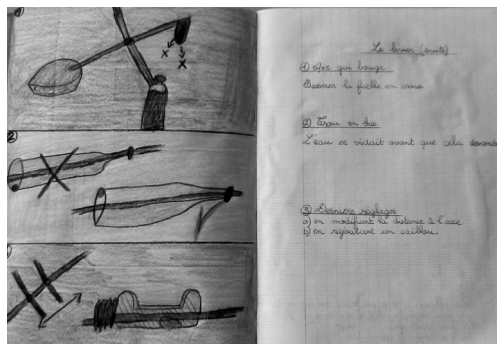 Le levier (suite)
① Axe qui bouge
Resserrer la ficelle en croix
② Trou en bas
L'eau se vidait avant que cela descende
③ Derniers réglages
a) en modifiant la distance à l'axe
b) en rajoutant un caillou.
2